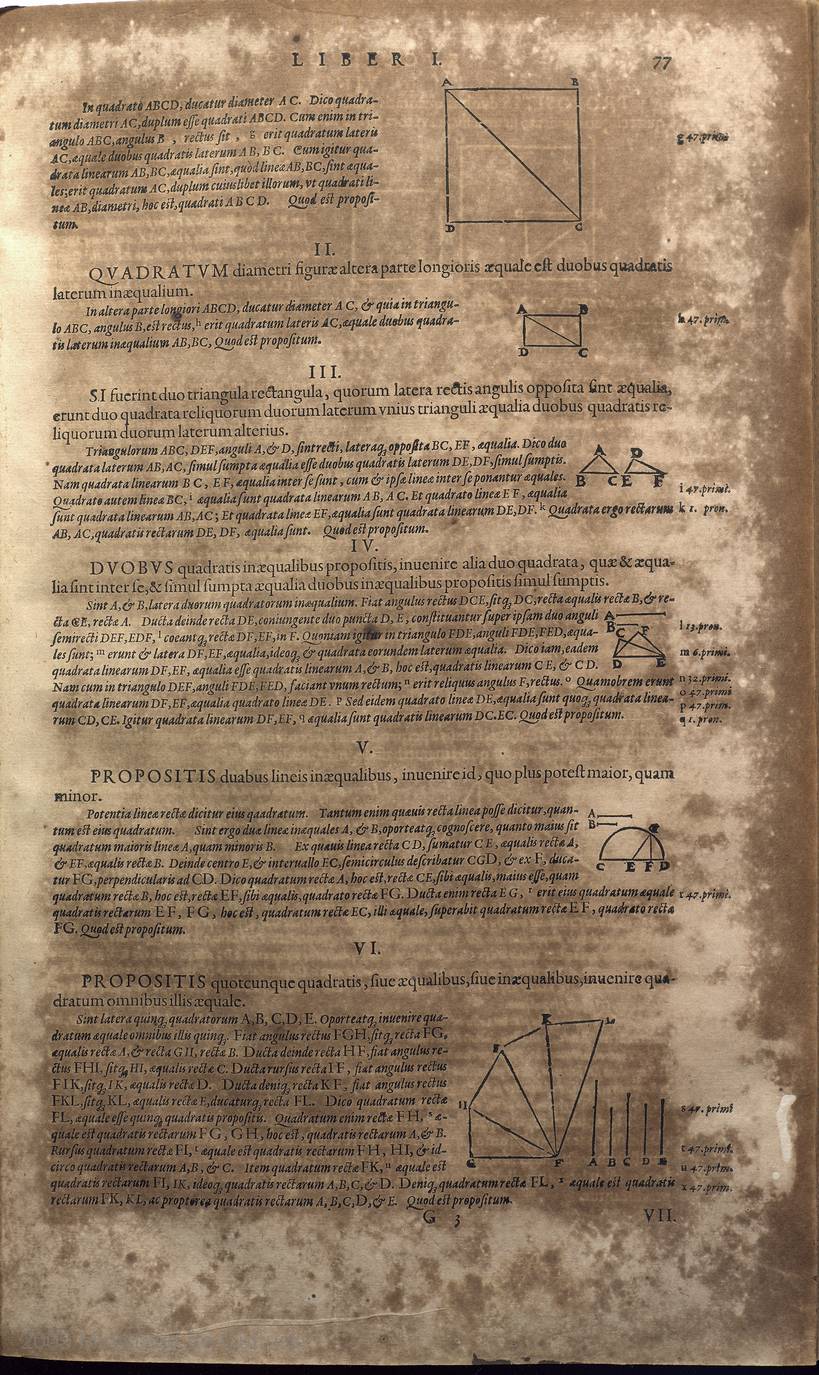 LIBER I. 77
In quadrato ABCD, ducatur diameter AC. Dico quadra-
tum diametri AC, duplum esse quadrati ABCD. Cum enim in tri-
angulo ABC, angulus B, rectus sit, g erit quadratum lateris
AC, æquale duobus quadratis laterum AB, BC. Cum igitur qua-
drata linearum AB, BC, æqualia sint, quòd lineæ AB, BC, sint æqua-
les; erit quadratum AC, duplum cuiuslibet illorum, vt quadrati li-
neæ AB, diametri, hoc est, quadrati ABCD. Quod est proposi-
tum.
A B
D C
g 47. primi
II.
QVADRATVM diametri figuræ altera parte longioris æquale est duobus quadratis
laterum inæqualium.
In altera parte longiori ABCD, ducatur diameter AC, & quia in triangu-
lo ABC, angulus B, est rectus, h erit quadratum lateris AC, æquale duobus quadra-
tis laterum inæqualium AB, BC, Quod est propositum.
A B
D C
h 47. prim.
III.
SI fuerint duo triangula rectangula, quorum latera rectis angulis opposita sint æqualia,
erunt duo quadrata reliquorum duorum laterum vnius trianguli æqualia duobus quadratis re-
liquorum duorum laterum alterius.
Triangulorum ABC, DEF, anguli A, & D, sint recti, lateraq; opposita BC, EF, æqualia. Dico duo
quadrata laterum AB, AC, simul sumpta æqualia esse duobus quadratis laterum DE, DF, simul sumptis.
Nam quadrata linearum BC, EF, æqualia inter se sunt, cum & ipsæ lineæ inter se ponantur æquales.
Quadrato autem lineæ BC, i æqualia sunt quadrata linearum AB, AC. Et quadrato lineæ EF, æqualia
sunt quadrata linearum AB, AC; Et quadrata lineæ EF, æqualia sunt quadrata linearum DE, DF. k Quadrata ergo rectarum
AB, AC, quadratis rectarum DE, DF, æqualia sunt. Quod est propositum.
A D
B C E F
i 47. primi.
k 1. pron.
IV.
DVOBVS quadratis inæqualibus propositis, inuenire alia duo quadrata, quæ & æqua-
lia sint inter se, & simul sumpta æqualia duobus inæqualibus propositis simul sumptis.
Sint A, & B, latera duorum quadratorum inæqualium. Fiat angulus rectus DCE, sitq; DC, recta æqualis rectæ B, & re-
cta CE, rectæ A. Ducta deinde recta DE, coniungente duo puncta D, E, constituantur super ipsam duo anguli
semirecti DEF, EDF, l coeantq; rectæ DF, EF, in F. Quoniam igitur in triangulo FDE, anguli FDE, FED, æqua-
les sunt; m erunt & latera DF, EF, æqualia, ideoq; & quadrata eorundem laterum æqualia. Dico iam, eadem
quadrata linearum DF, EF, æqualia esse quadratis linearum A, & B, hoc est, quadratis linearum CE, & CD.
Nam cum in triangulo DEF, anguli FDE, FED, faciant vnum rectum; n erit reliquus angulus F, rectus. o Quamobrem erunt
quadrata linearum DF, EF, æqualia quadrato lineæ DE. p Sed eidem quadrato lineæ DE, æqualia sunt quoq; quadrata linea-
rum CD, CE. Igitur quadrata linearum DF, EF, q æqualia sunt quadratis linearum DC. EC. Quod est propositum.
A
B
C F
D E
l 13. pron.
m 6. primi.
n 32. primi.
o 47. primi
p 47. primi.
q 1. pron.
V.
PROPOSITIS duabus lineis inæqualibus, inuenire id, quo plus potest maior, quam
minor.
Potentia lineæ rectæ dicitur eius quadratum. Tantum enim quæuis recta linea posse dicitur, quan-
tum est eius quadratum. Sint ergo duæ lineæ inæquales A, & B, oporteatq; cognoscere, quanto maius sit
quadratum maioris lineæ A, quam minoris B. Ex quauis recta CD, sumatur CE, æqualis rectæ A,
& EF, æqualis rectæ B. Deinde centro E, & interuallo EC, semicirculus describatur CGD, & ex F, duca-
tur FG, perpendicularis ad CD. Dico quadratum rectæ A, hoc est, rectæ CE, sibi æqualis, maius esse, quam
quadratum rectæ B, hoc est, rectæ EF, sibi æqualis, quadrato rectæ FG. Ducta enim recta EG, r erit eius quadratum æquale
quadratis rectarum EF, FG, hoc est, quadratum rectæ EC, illi æquale, superabit quadratum rectæ EF, quadrato rectæ
FG. Quod est propositum.
A
B
G
C E F D
r 47. primi.
VI.
PROPOSITIS quotcunque quadratis, siue æqualibus, siue inæqualibus, inuenire qua-
dratum omnibus illis æquale.
Sint latera quinq; quadratorum A, B, C, D, E. Oporteatq; inuenire qua-
dratum æquale omnibus illis quinq;. Fiat angulus rectus FGH, sitq; recta FG,
æqualis rectæ A, & recta GH, rectæ B. Ducta deinde recta HF, fiat angulus re-
ctus FHI, sitq; HI, æqualis rectæ C. Ducta rursus recta IF, fiat angulus rectus
FIK, sitq; IK, æqualis rectæ D. Ducta deniq; recta KF, fiat angulus rectus
FKL, sitq; KL, æqualis rectæ E, ducaturq; recta FL. Dico quadratum rectæ
FL, æquale esse quinq; quadratis propositis. Quadratum enim rectæ FH, s æ-
quale est quadratis rectarum FG, GH, hoc est, quadratis rectarum A, & B.
Rursus quadratum rectæ FI, t æquale est quadratis rectarum FH, HI, & id-
circo quadratis rectarum A, B, & C. Item quadratum rectæ FK, u æquale est
quadratis rectarum FI, IK, ideoq; quadratis rectarum A, B, C, & D. Deniq; quadratum rectæ FL, x æquale est quadratis
rectarum FK, KL, ac propterea quadratis rectarum A, B, C, D, & E. Quod est propositum.
K L
I
H
G F A B C D E
s 47. primi
t 47. primi.
u 47. prim.
x 47. prim.
G 3 VII.